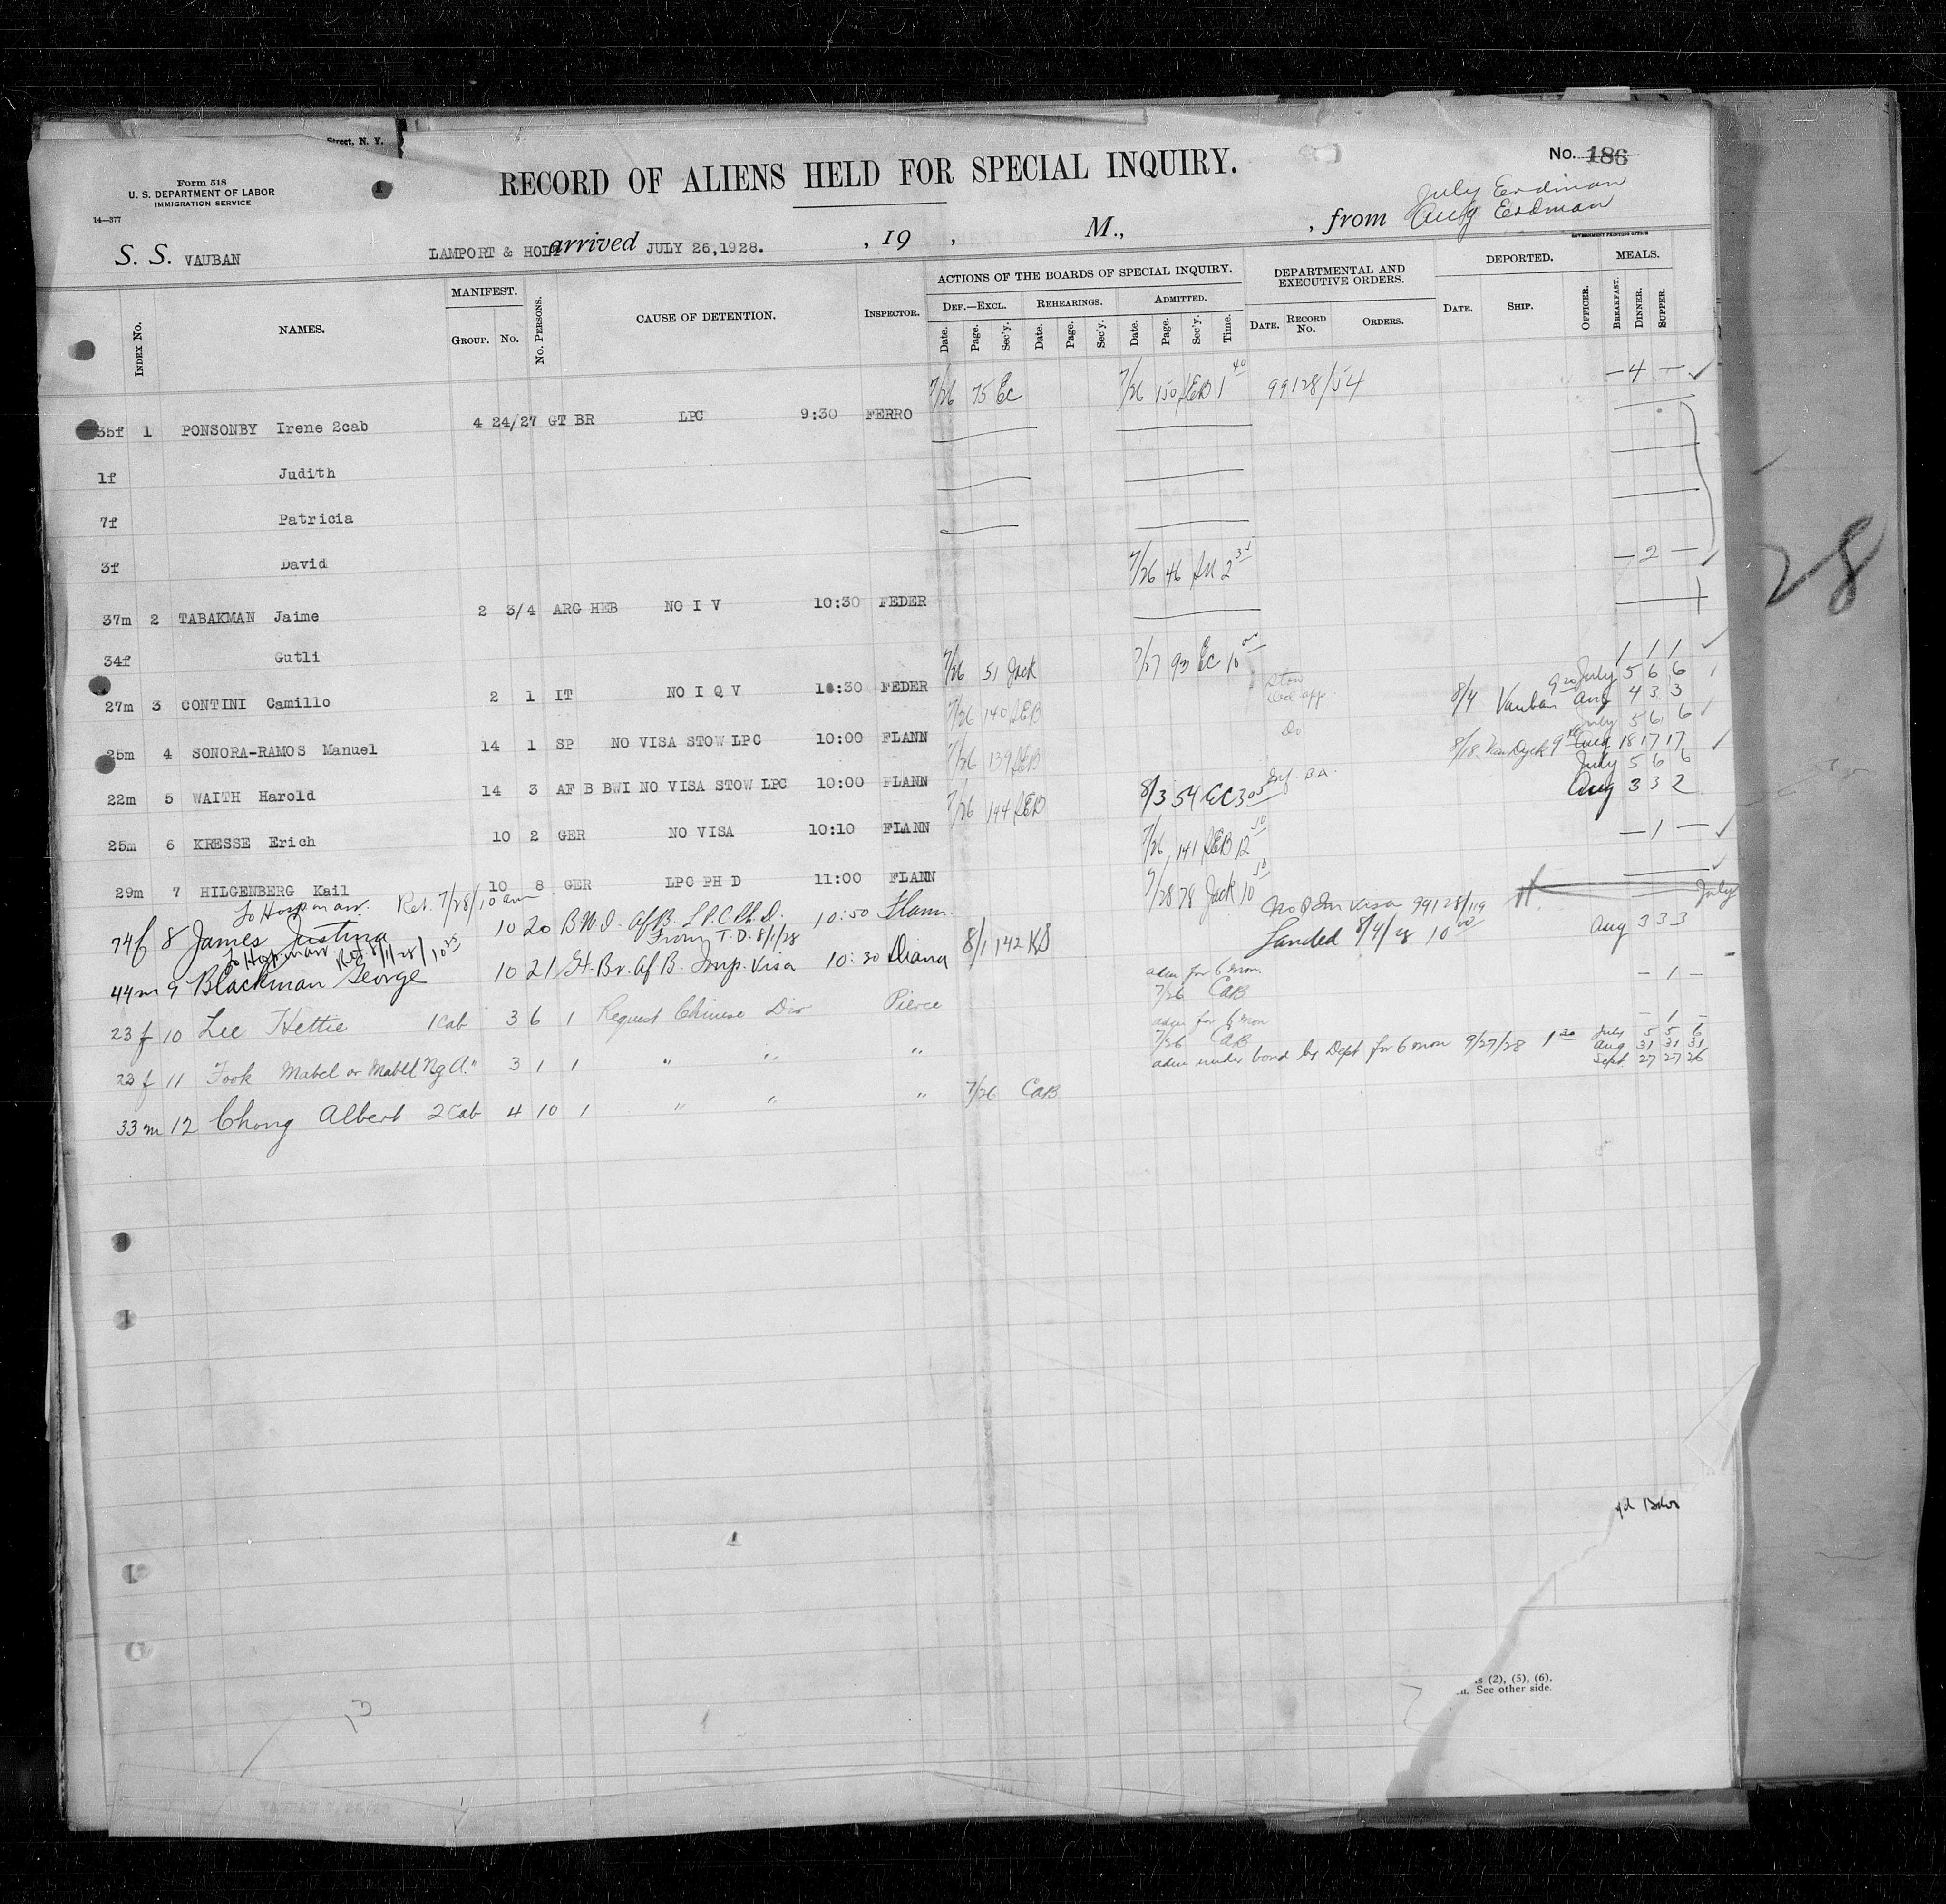 Street, N. Y.
Form 518
U. S. DEPARTMENT OF LABOR
IMMIGRATION SERVICE
14—377
RECORD OF ALIENS HELD FOR SPECIAL INQUIRY.
No. 186
July Erdman
Aug Erdman
S. S. VAUBAN LAMPORT & HOLT arrived JULY 26,1928. , 19 , M., , from
GOVERNMENT PRINTING OFFICE
INDEX No. NAMES. MANIFEST. Group. No. No. PERSONS. CAUSE OF DETENTION. INSPECTOR. ACTIONS OF THE BOARDS OF SPECIAL INQUIRY. DEF.—EXCL. Date. Page. Sec'y. REHEARINGS. Date. Page. Sec'y. ADMITTED. Date. Page. Sec'y. Time. DEPARTMENTAL AND EXECUTIVE ORDERS. DATE. RECORD No. ORDERS. DEPORTED. DATE. SHIP. OFFICER. MEALS. BREAKFAST. DINNER. SUPPER.
7/26 75 EC 7/26 150 LEB 1 40 99128/54 — 4 —
35f 1 PONSONBY Irene 2cab 4 24/27 GT BR LPC 9:30 FERRO
1f Judith
7f Patricia
3f David
7/26 46 2 — 2 —
37m 2 TABAKMAN Jaime 2 3/4 ARG HEB NO I V 10:30 FEDER
34f Gutli
7/26 51 Jack 7/27 93 EC 10 1 1 1
27m 3 CONTINI Camillo 2 1 IT NO I Q V 10:30 FEDER
7/26 140 LEB Stow 8/4 Vauban July 5 6 6
Aug 4 3 3
25m 4 SONORA-RAMOS Manuel 14 1 SP NO VISA STOW LPC 10:00 FLANN
7/26 139 LEB Do 8/18 VanDyck July 5 6 6
Aug 18 17 17
22m 5 WAITH Harold 14 3 AF B BWI NO VISA STOW LPC 10:00 FLANN
7/26 144 LEB 8/3 54 EC 3 05 July 5 6 6
Aug 3 3 2
25m 6 KRESSE Erich 10 2 GER NO VISA 10:10 FLANN
7/26 141 LEB 12 — 1 —
29m 7 HILGENBERG Kail 10 8 GER LPC PH D 11:00 FLANN
To Hosp Ret. 7/28/10 am 7/28 78 Jack 10 July
74f 8 James Justina 10 20 B.W.I. Af B. L.P.C. Ph.D. 10:50 Flann.
To Hosp Ret 8/1/28/10 From T. D. 8/1/28 8/1 142 KS visa 99128/119
Landed 8/4/28 10 00 Aug 3 3 3
44m 9 Blackman George 10 21 Gt. Br. Af B. Imp. Visa 10:30 Diana
adm for 6 mon. 7/26 CaB — 1 —
23 f 10 Lee Hettie 1 cab 3 6 1 Request Chinese Div Pierce
adm for 6 mon 7/26 CaB — 1 —
23 f 11 Fook Mabel or Mabel Ng A. " 3 1 1 " " "
adm under bond by Dept for 6 mon 9/27/28 1 30 July 5 5 6
Aug 31 31 31
Sept. 27 27 26
33 m 12 Chong Albert 2 Cab 4 10 1 " " " 7/26 CaB
28
(2), (5), (6).
See other side.
13